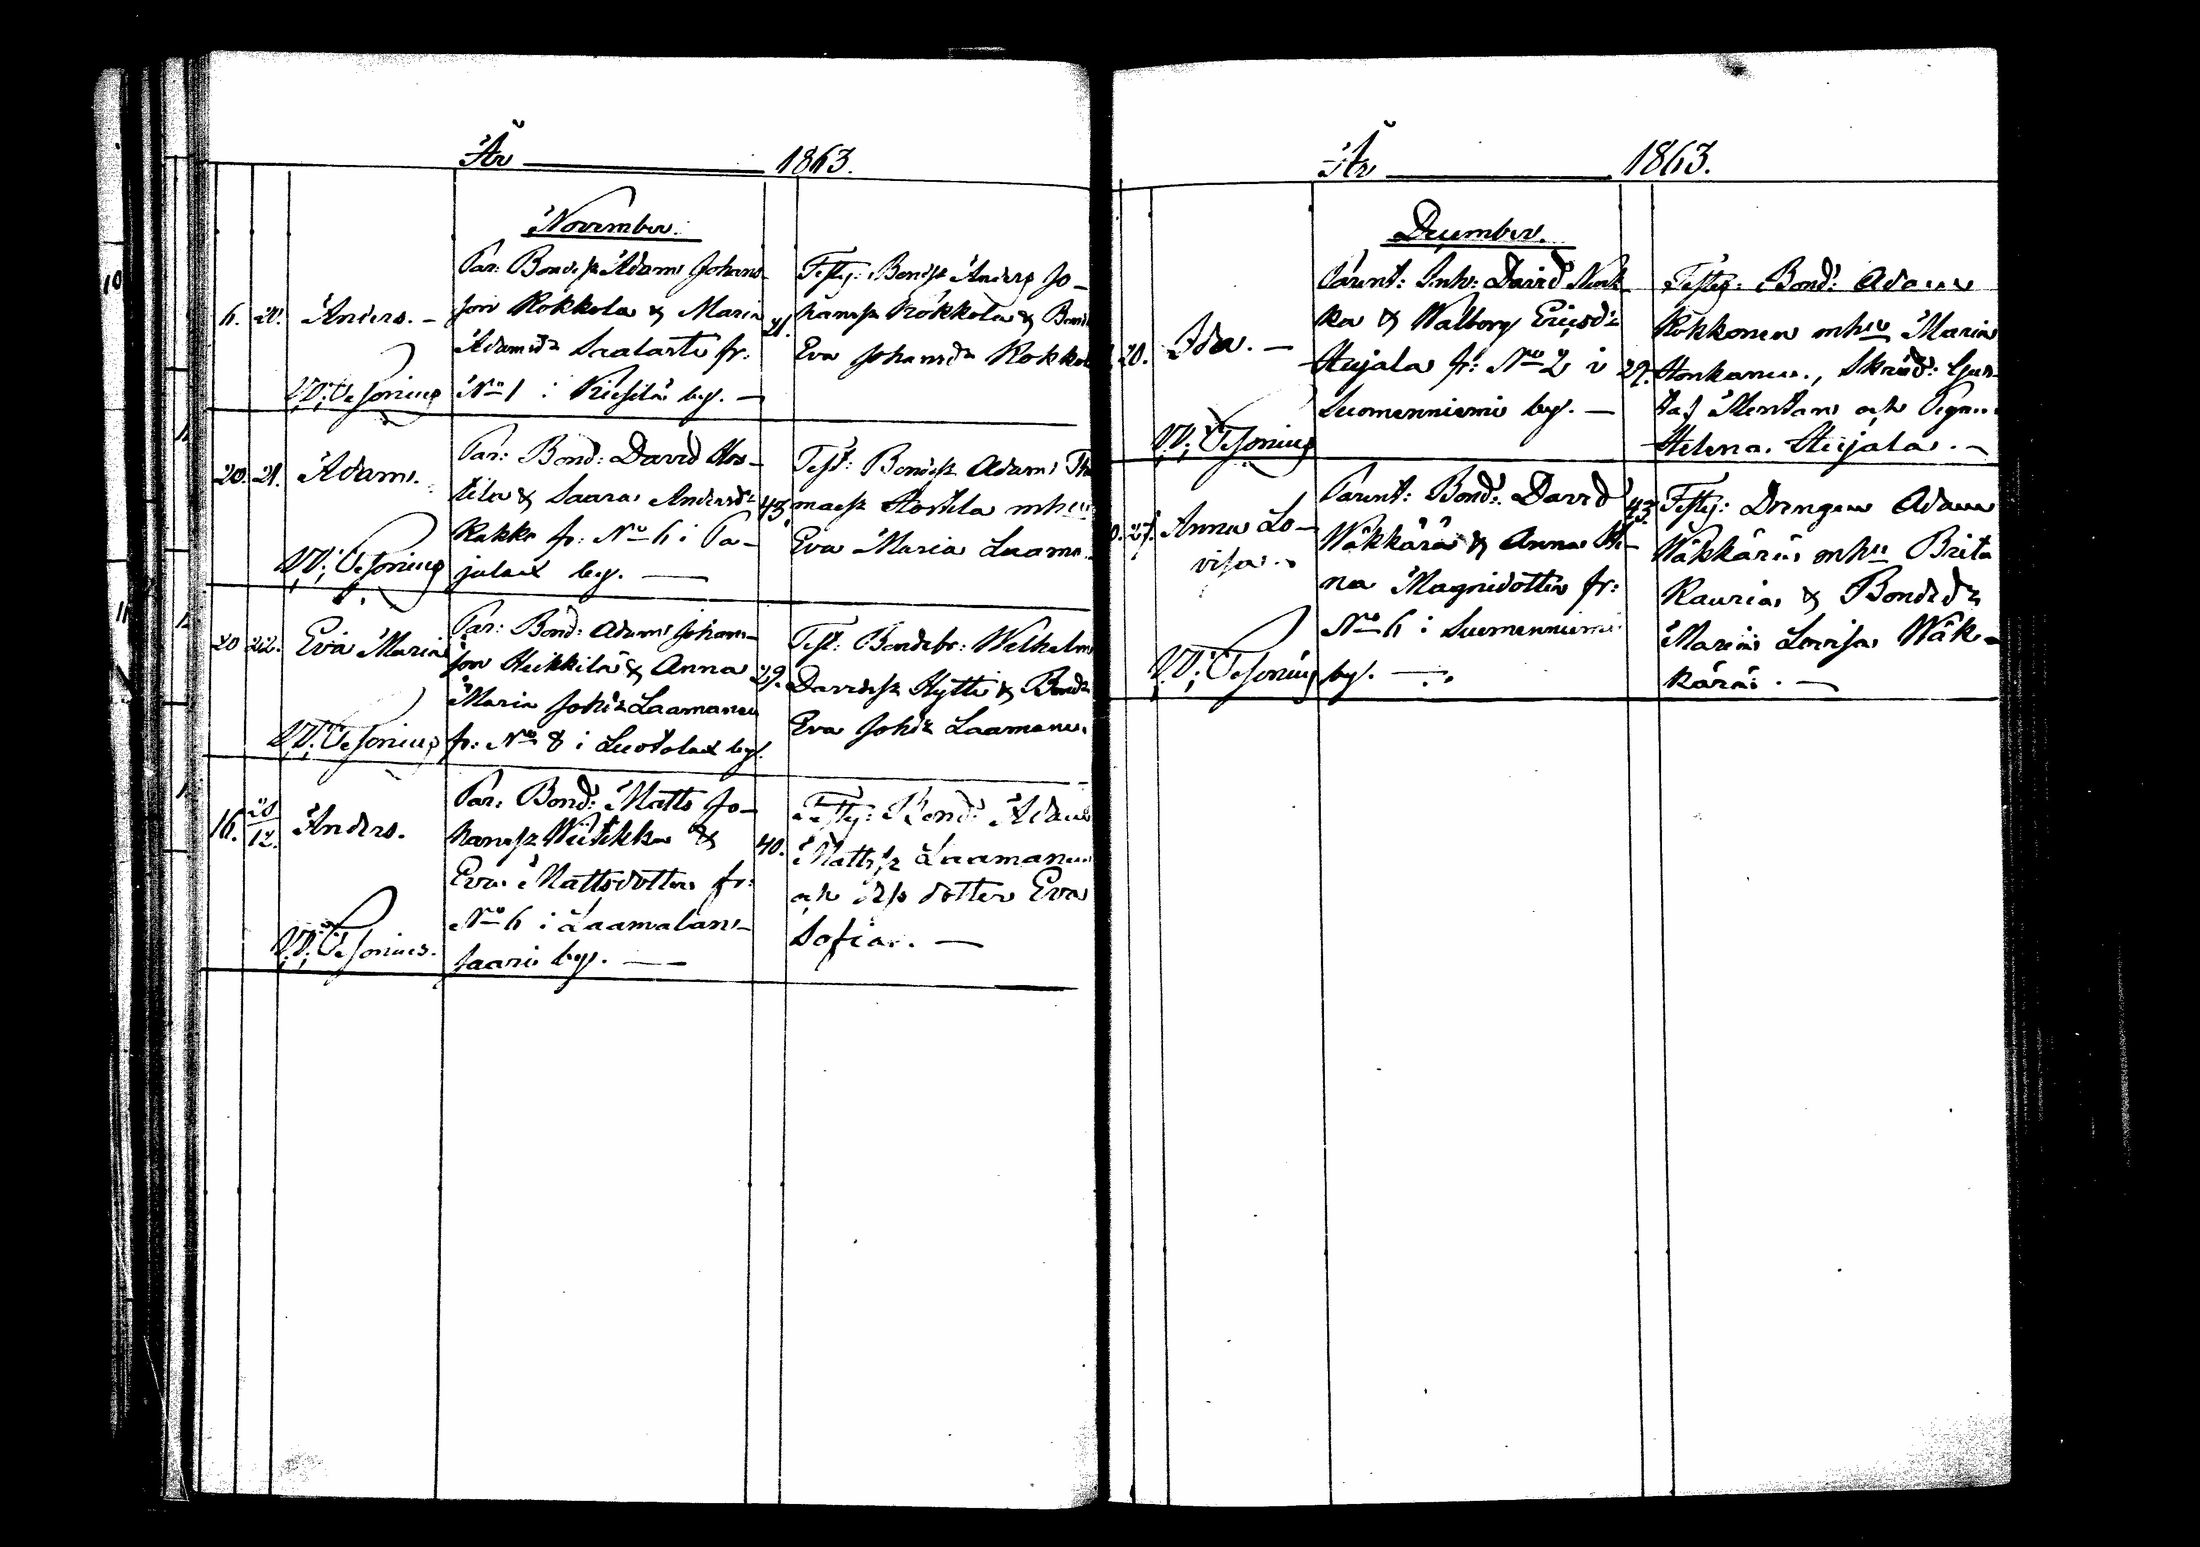 År 1863.
November.
6. 20. Anders. –
Par: Bondesk Adam Johans-
son Kokkola & Maria
Adamsdr Saalasti fr:
No 1 i Kiesilä by. –
21.
Testeg: Bondesk Anders Jo-
hanesk Kokkola & Bond
Eva Johansdr Kokkol
20. 21. Adam.
Par: Bond: David Hos-
tila & Saara Andersdr
Kakko fr: No 6 i Pa-
julax by. –
43.
Test: Bondesk Adam
maesk Hostila mhu
Eva Maria Laama
20 22. Eva Maria
Par: Bond: Adam Johans-
son Heikkilä & Anna
Maria Johdr Laamanen
fr: No 8 i Luotolax by.
29.
Test: Bondebr: Wilhelm
Davidsk Hytti & Bondr
Eva Johdr Laamanen.
16. 28/12. Anders.
Par: Bond: Matts Jo-
hanesk Wiitikka &
Eva Mattsdotter fr:
No 6 i Laamalan-
saari by. –
40.
Testeg: Bond: Adam
Mattssk Laamanen
och dess dotter Eva
Sofia. –
År 1863.
December.
20. Ida. –
Parent: Inh: David
ka & Walborg Ericsdr
Heijala fr: No 2 i
Suomenniemi by. –
29.
Testeg: Bond: Adam
Kokkonen mhu Maria
Honkanen, Skrädd: Gus-
taf Mentan och Pign
Helena Heijala. –
27. Anna Lo-
visa.
Parent: Bond: David
Wäkkärä & Anna He-
na Magnidotter fr:
No 6 i Suomenniemi
by. –
43.
Testeg: Drengen Adam
Wäkkärä mhu Brita
Kauria & Bondedr
Maria Lovisa Wäk-
kärä. –